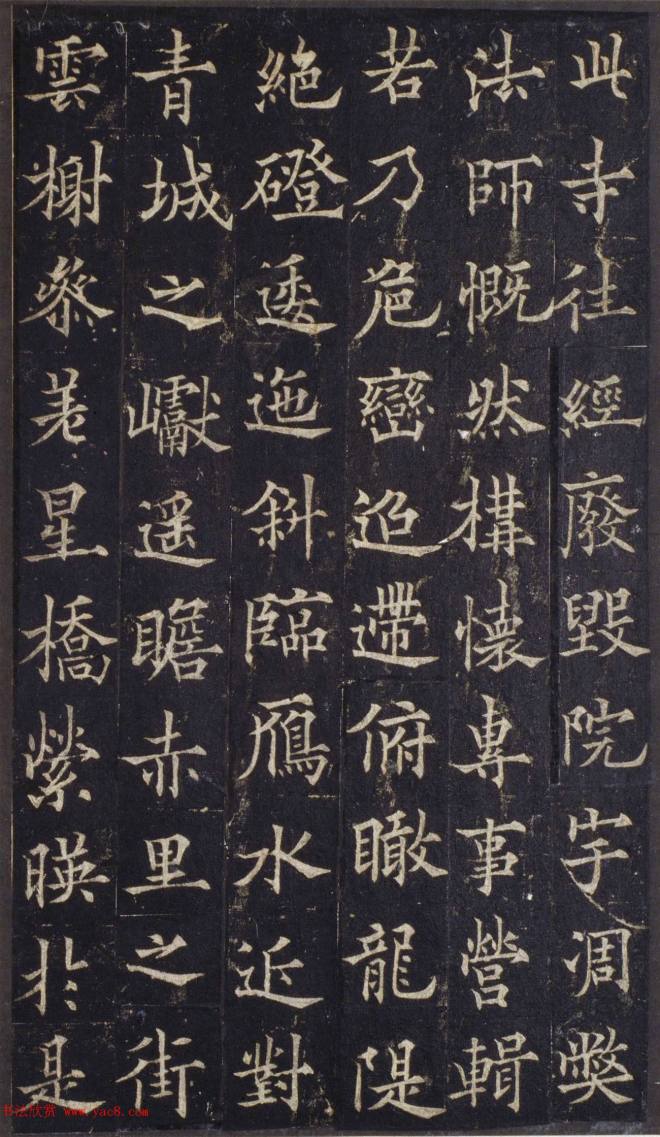 此寺往經廢毀院宇凋弊
法師慨然構懷專事營輯
若乃危巒迢遰俯瞰龍隄
絶磴逶迤斜臨鴈水近對
青城之巘遥瞻赤里之街
雲榭參差星橋縈暎於是
书法欣赏 www.yac8.com